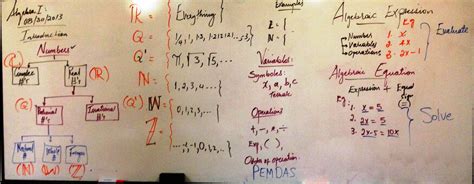 Algebra I:
08/20/2013
Introduction
Numbers
Complex #'s
Real #'s
(ℝ)
(Q)
Rational #'s
Irrational #'s
(Q')
Natural #
Whole #
Integers
(ℕ)
(W)
(ℤ)
ℝ = { Everything
Q = {
Q' = { π, √3, √5, ...
ℕ = { 1, 2, 3, 4, ...
W = { 0, 1, 2, 3, ...
ℤ = { ... -1, 0, 1, 2, ..
Examples
Variables:
Symbols:
x, a, b, c
Operations
+, -, *, ÷
Exp, ( )
Order of operation:
PEMDAS
Algebraic Expression
Eg
Number
Variables
Operations
1. x
2. 4x
3. 2x-1
Evaluate
Algebraic Equation
Expression + Equal sign
=
Eg:
1. x = 5
2. 2x = 5
3. 2x-5 = 10x
Solve